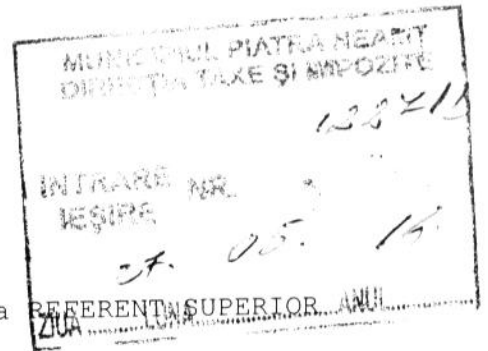 MUNICIPIUL PIATRA NEAMȚ
DIRECȚIA TAXE ȘI IMPOZITE
INTRARE NR.
IEȘIRE
05.
a REFERENT SUPERIOR
ZIUA LUNA ANUL